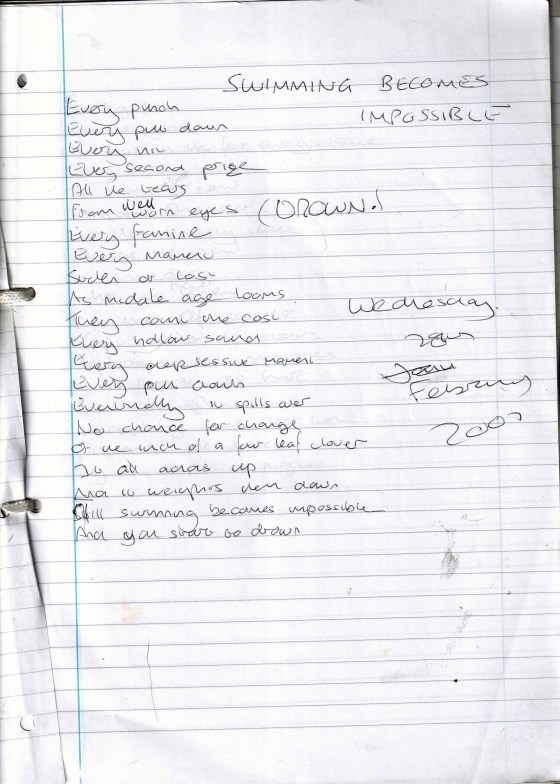 SWIMMING BECOMES
IMPOSSIBLE
Every punch
Every pull down
Every
Every second prize
All the tears
From well worn eyes (DROWN!)
Every famine
Every moment
Stolen or lost
As middle age looms
They count the cost
Every hollow sound
Every depressive moment
Every pull down
Eventually it spills over
No chance for change
Or the luck of a four leaf clover
It all adds up
And it weighs them down
Still swimming becomes impossible
And you start to drown
Wednesday
28th
February
2007